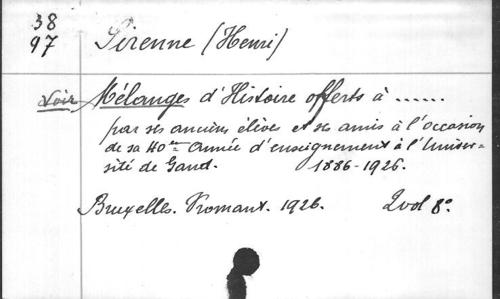 38
97
Pirenne (Henri)
Voir Mélanges d'Histoire offerts à ......
par ses anciens élève et ses amis à l'occasion
de sa 40me Année d'enseignement à l'Univer=
sité de Gand. 1886-1926.
Bruxelles. Vromant. 1926. 2vol 8°